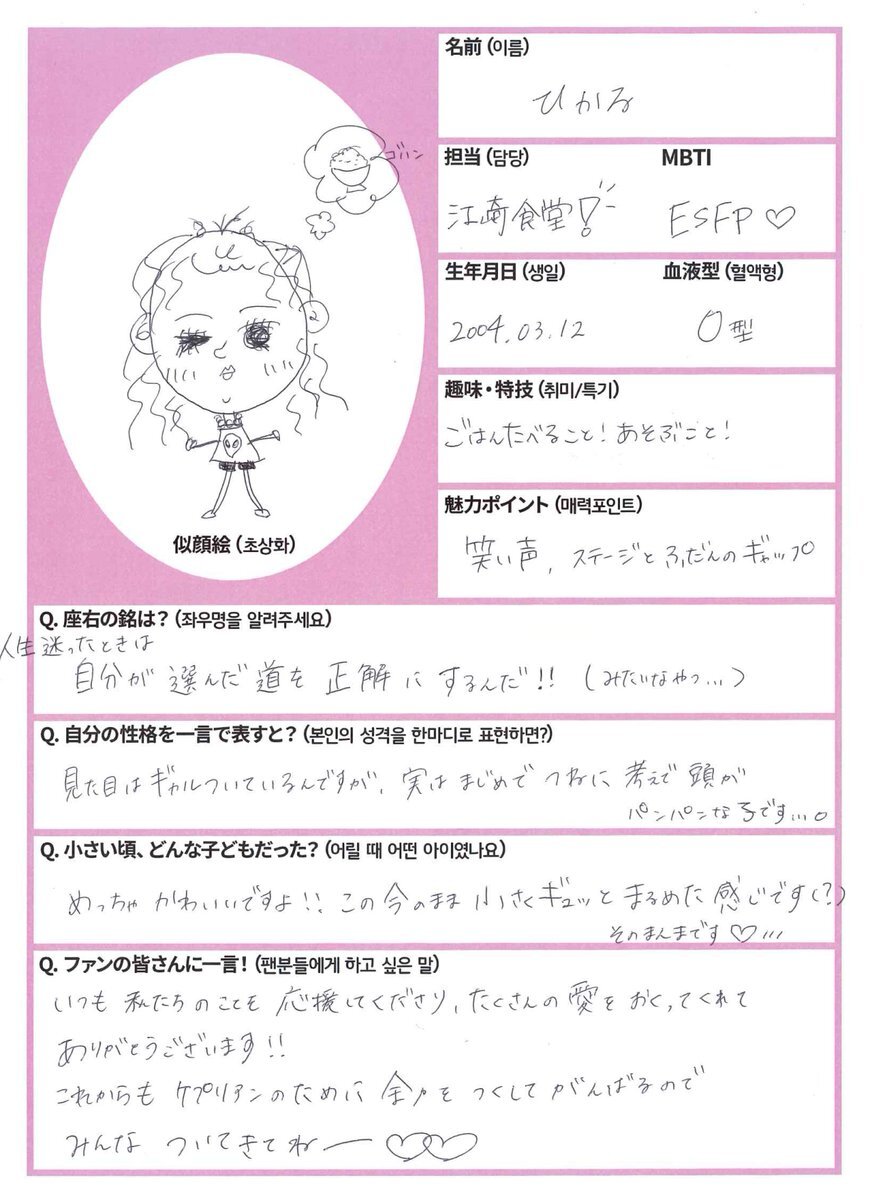 名前（이름）
ひかる
担当（담당）
江崎食堂！
MBTI
ESFP♡
生年月日（생일）
2004.03.12
血液型（혈액형）
O型
趣味・特技（취미/특기）
ごはんたべること！あそぶこと！
魅力ポイント（매력포인트）
笑い声、ステージとふだんのギャップ
ゴハン
似顔絵（초상화）
Q. 座右の銘は？（좌우명을 알려주세요）
人生迷ったときは
自分が選んだ道を正解にするんだ!!（みたいなやつ...）
Q. 自分の性格を一言で表すと？（본인의 성격을 한마디로 표현하면?）
見た目はギャルついているんですが、実はまじめでつねに考えで頭が
パンパンな子です...。
Q. 小さい頃、どんな子どもだった？（어릴 때 어떤 아이였나요）
めっちゃかわいいですよ!! この今のまま小さくギュッとまるめた感じです(?)
そのまんまです♡...
Q. ファンの皆さんに一言！（팬분들에게 하고 싶은 말）
いつも私たちのことを応援してくださり、たくさんの愛をおくってくれて
ありがとうございます!!
これからもケプリアンのために全力をつくしてがんばるので
みんなついてきてねー♡♡